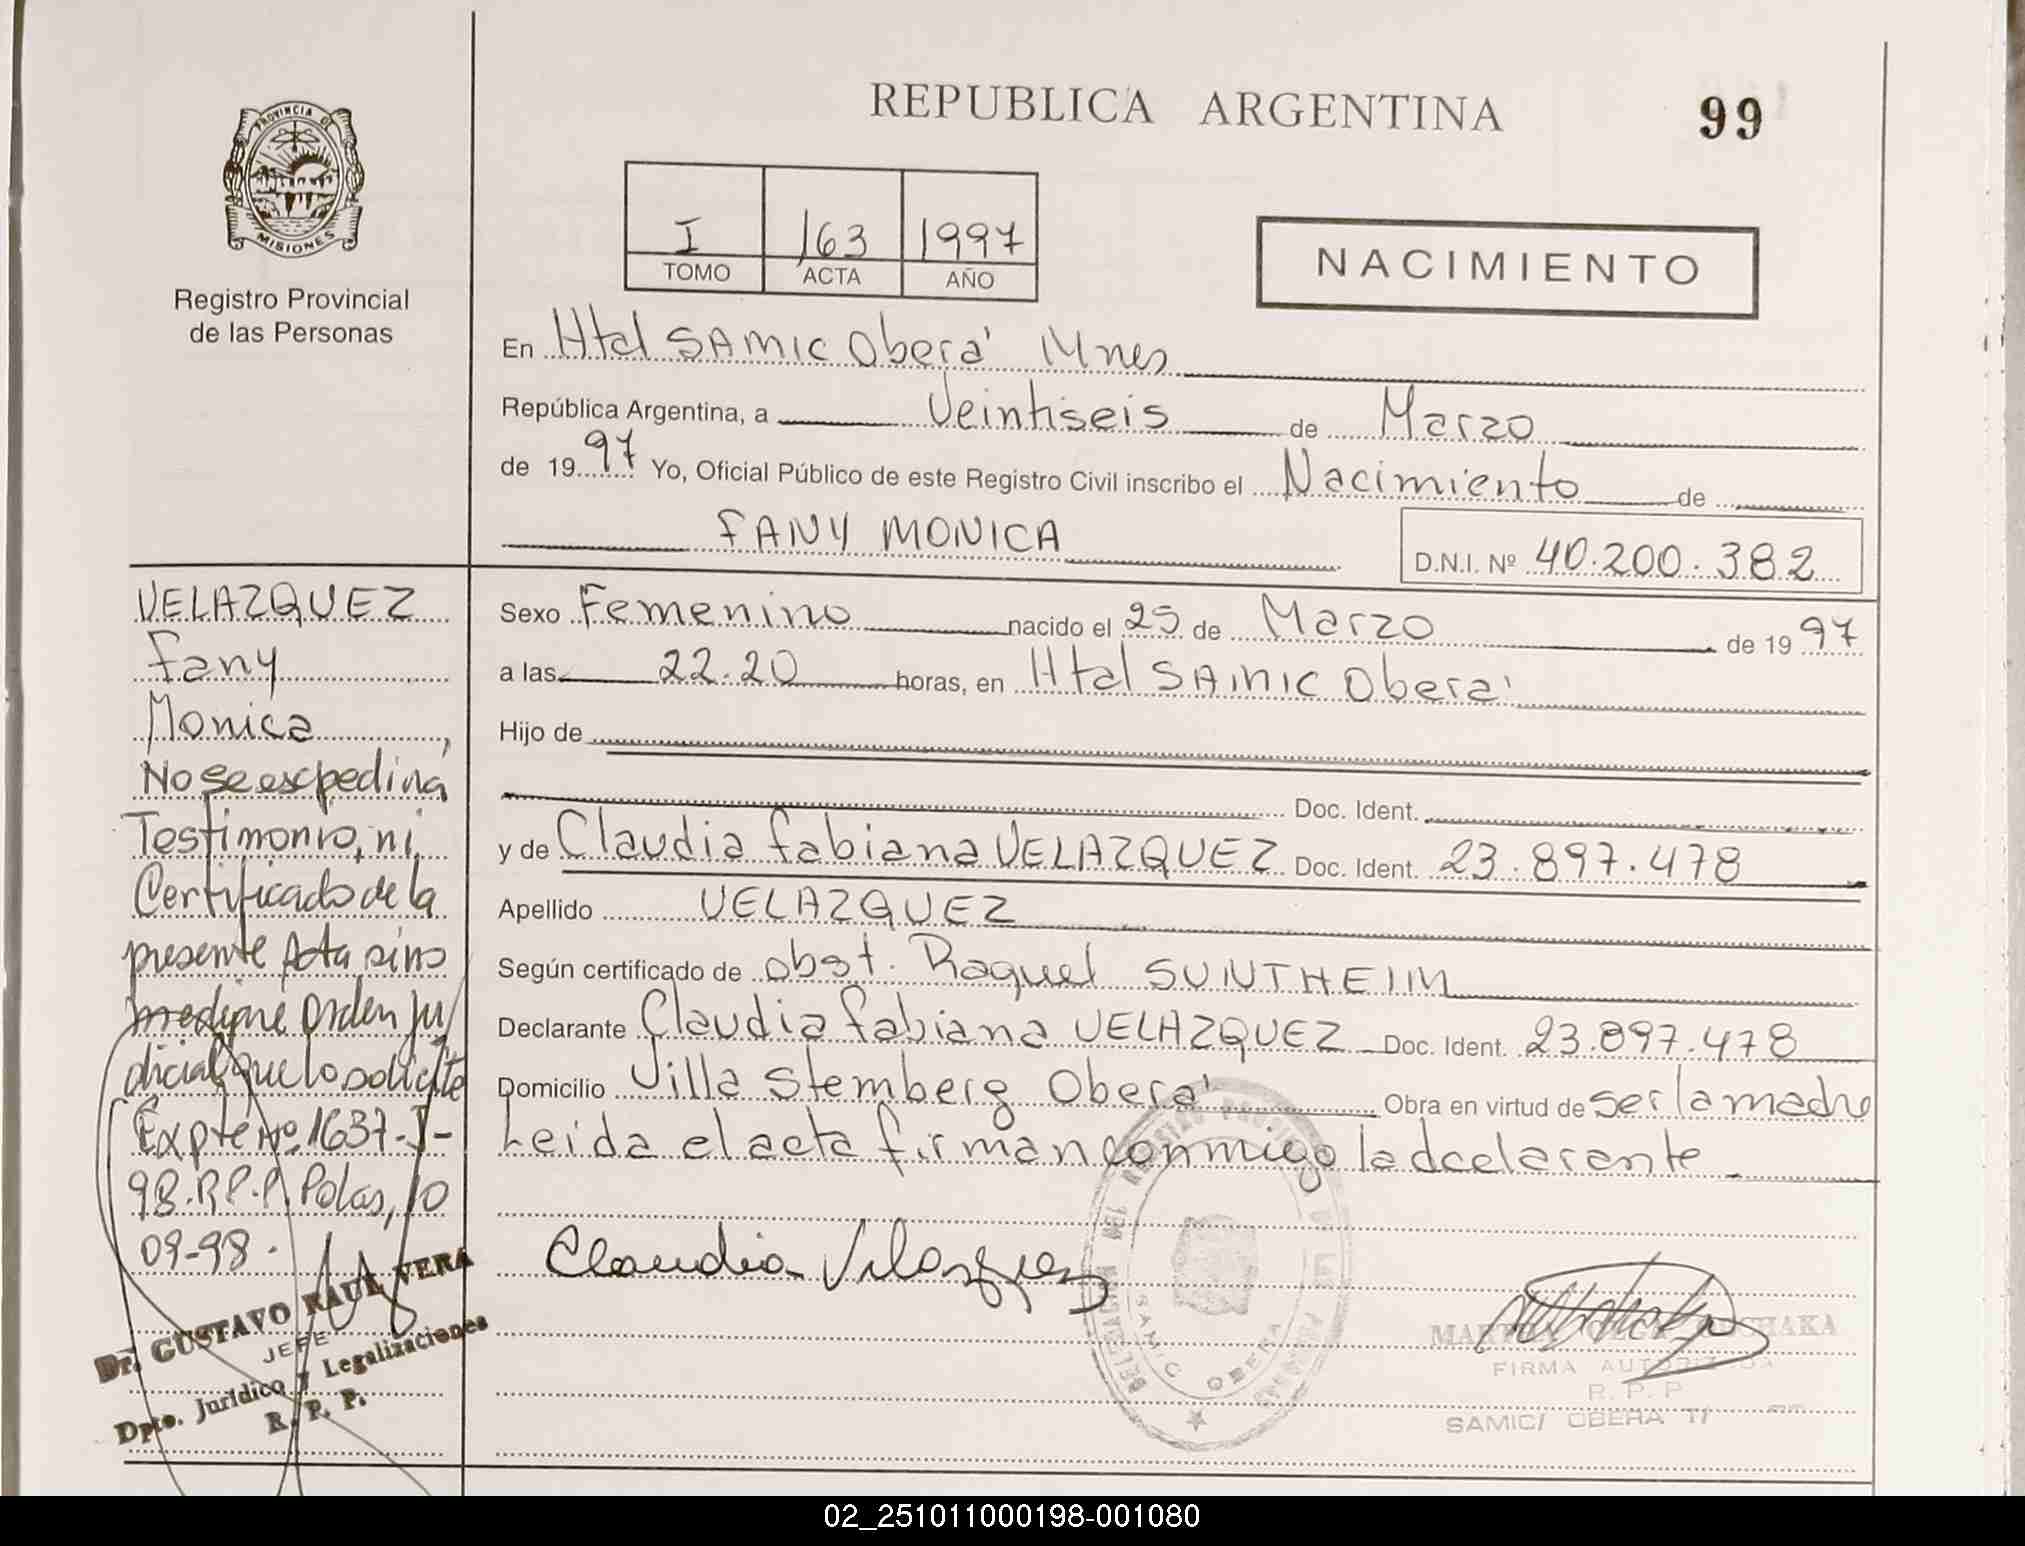 REPUBLICA ARGENTINA
99
PROVINCIA DE
MISIONES
Registro Provincial
de las Personas
I 163 1997
TOMO ACTA AÑO
NACIMIENTO
En Htal SAMIC Oberá Mnes
República Argentina, a Veintiseis de Marzo
de 1997 Yo, Oficial Público de este Registro Civil inscribo el Nacimiento de
FANY MONICA
D.N.I. Nº 40.200.382
VELAZQUEZ
Fany
Monica,
No se expedirá
Testimonio, ni
Certificado de la
presente Acta sino
mediante Orden Ju
dicial que lo solicite
Expte Nº 1637-I-
98.R.P.P. Pdas, 10
09-98.
Dr. GUSTAVO RAUL VERA
JEFE
Dpto. Jurídico y Legalizaciones
R. P. P.
Sexo Femenino nacido el 25 de Marzo de 1997
a las 22.20 horas, en Htal SAMIC Oberá
Hijo de
Doc. Ident.
y de Claudia Fabiana VELAZQUEZ Doc. Ident. 23.897.478
Apellido VELAZQUEZ
Según certificado de obst. Raquel SUNTHEIM
Declarante Claudia Fabiana VELAZQUEZ Doc. Ident. 23.897.478
Domicilio Villa Stemberg Oberá Obra en virtud de ser la madre
Leida el acta firman conmigo la declarante
Claudia Velazquez
SAMIC OBERA
MARTHA
FIRMA AUTORIZADA
R. P. P
SAMIC/ OBERA
02_251011000198-001080